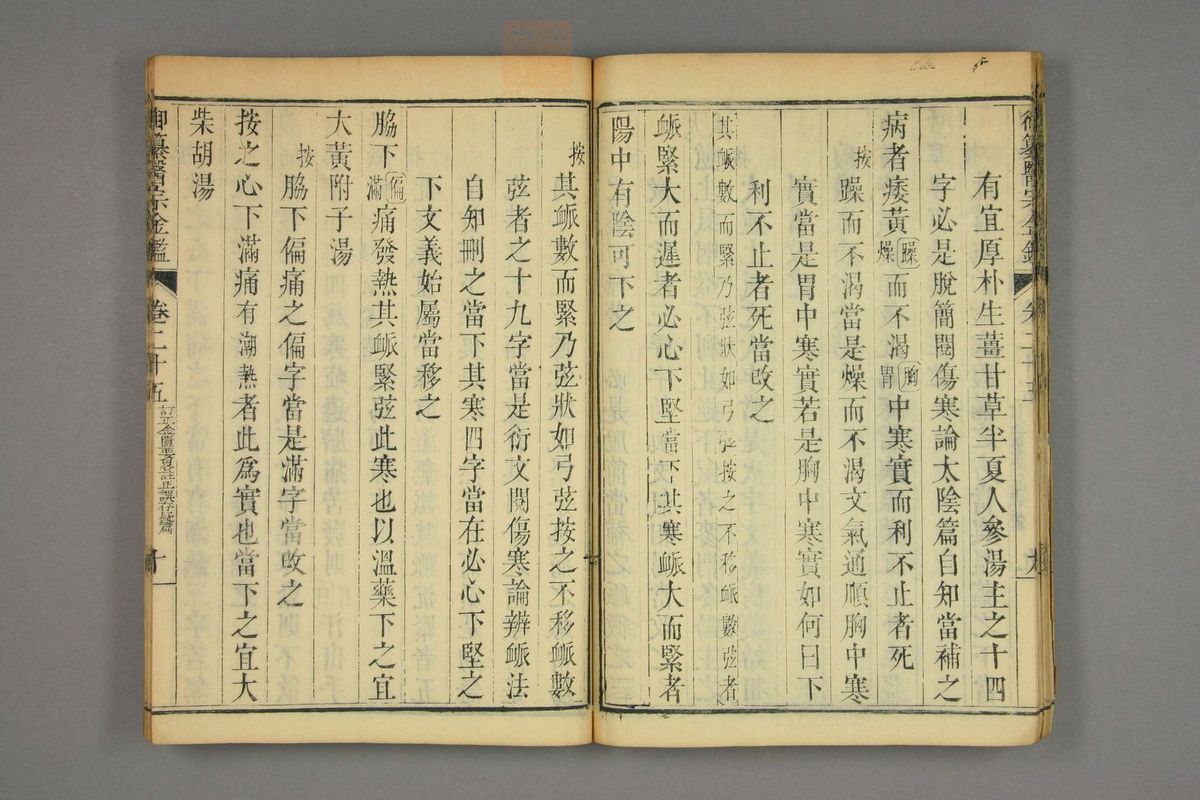 有宜厚朴生薑甘草半夏人參湯主之十四
字必是脫簡閱傷寒論太陰篇自知當補之
病者痿黃躁燥而不渴胸胃中寒實而利不止者死
按躁而不渴當是燥而不渴文氣通順胸中寒
實當是胃中寒實若是胸中寒實如何曰下
利不止者死當改之
其脈數而緊乃弦狀如弓弦按之不移脈數弦者
脈緊大而遲者必心下堅當下其寒脈大而緊者
陽中有陰可下之
按其脈數而緊乃弦狀如弓弦按之不移脈數
弦者之十九字當是衍文閱傷寒論辨脈法
自知刪之當下其寒四字當在必心下堅之
下文義始屬當移之
脇下偏滿痛發熱其脈緊弦此寒也以溫藥下之宜
大黃附子湯
按脇下偏痛之偏字當是滿字當改之
按之心下滿痛有潮熱者此爲實也當下之宜大
柴胡湯
御纂醫宗金鑑
卷二十五
訂正金匱要畧註正誤存疑篇
十